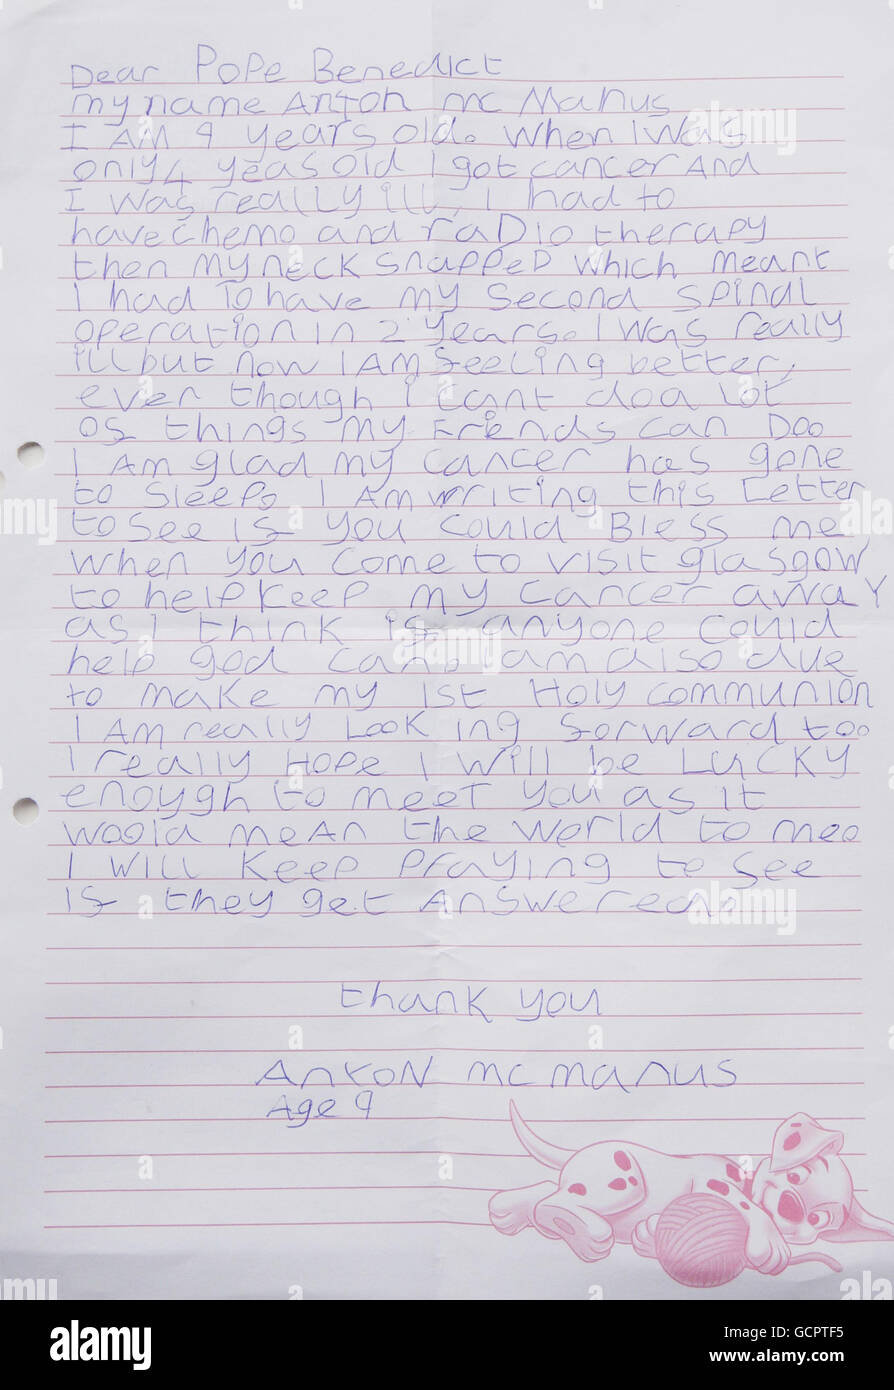 Dear Pope Benedict
my name Anton mc Manus
I AM 9 years old. when I was
only 4 yeas old I got cancer And
I was really ill, I had to
have chemo and radio therapy
then my neck snapped which meant
I had to have my second spinal
operation in 2 years. I was really
ill but now I AM feeling better,
even though i cant do a lot
of things my Friends can Do.
I AM glad my cancer has gone
to sleep. I AM writing this Letter
to see if you could Bless me
when you come to visit glasgow
to help keep my cancer away
as I think if anyone could
help god can. I am also due
to make my 1st Holy communion
I AM really Looking forward too.
I really Hope I will be LUCKY
enough to meet you as it
woold mean the world to me.
I will keep praying to see
if they get Answered.
thank you
Anton mc manus
Age 9
alamy
Image ID: GCPTF5
www.alamy.com